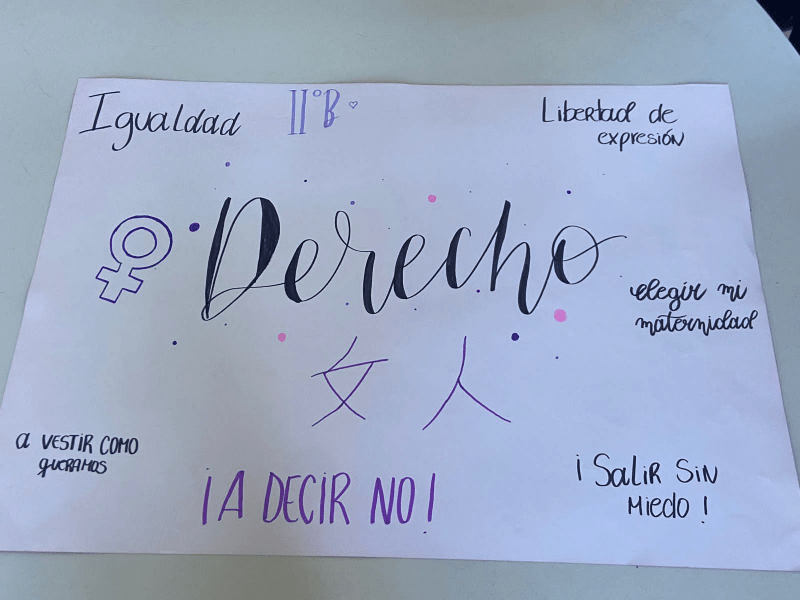 Igualdad
II°B
Libertad de
expresión
Derecho
elegir mi
maternidad
女人
a VESTIR COMO
queramos
¡A DECIR NO!
¡Salir sin
Miedo!